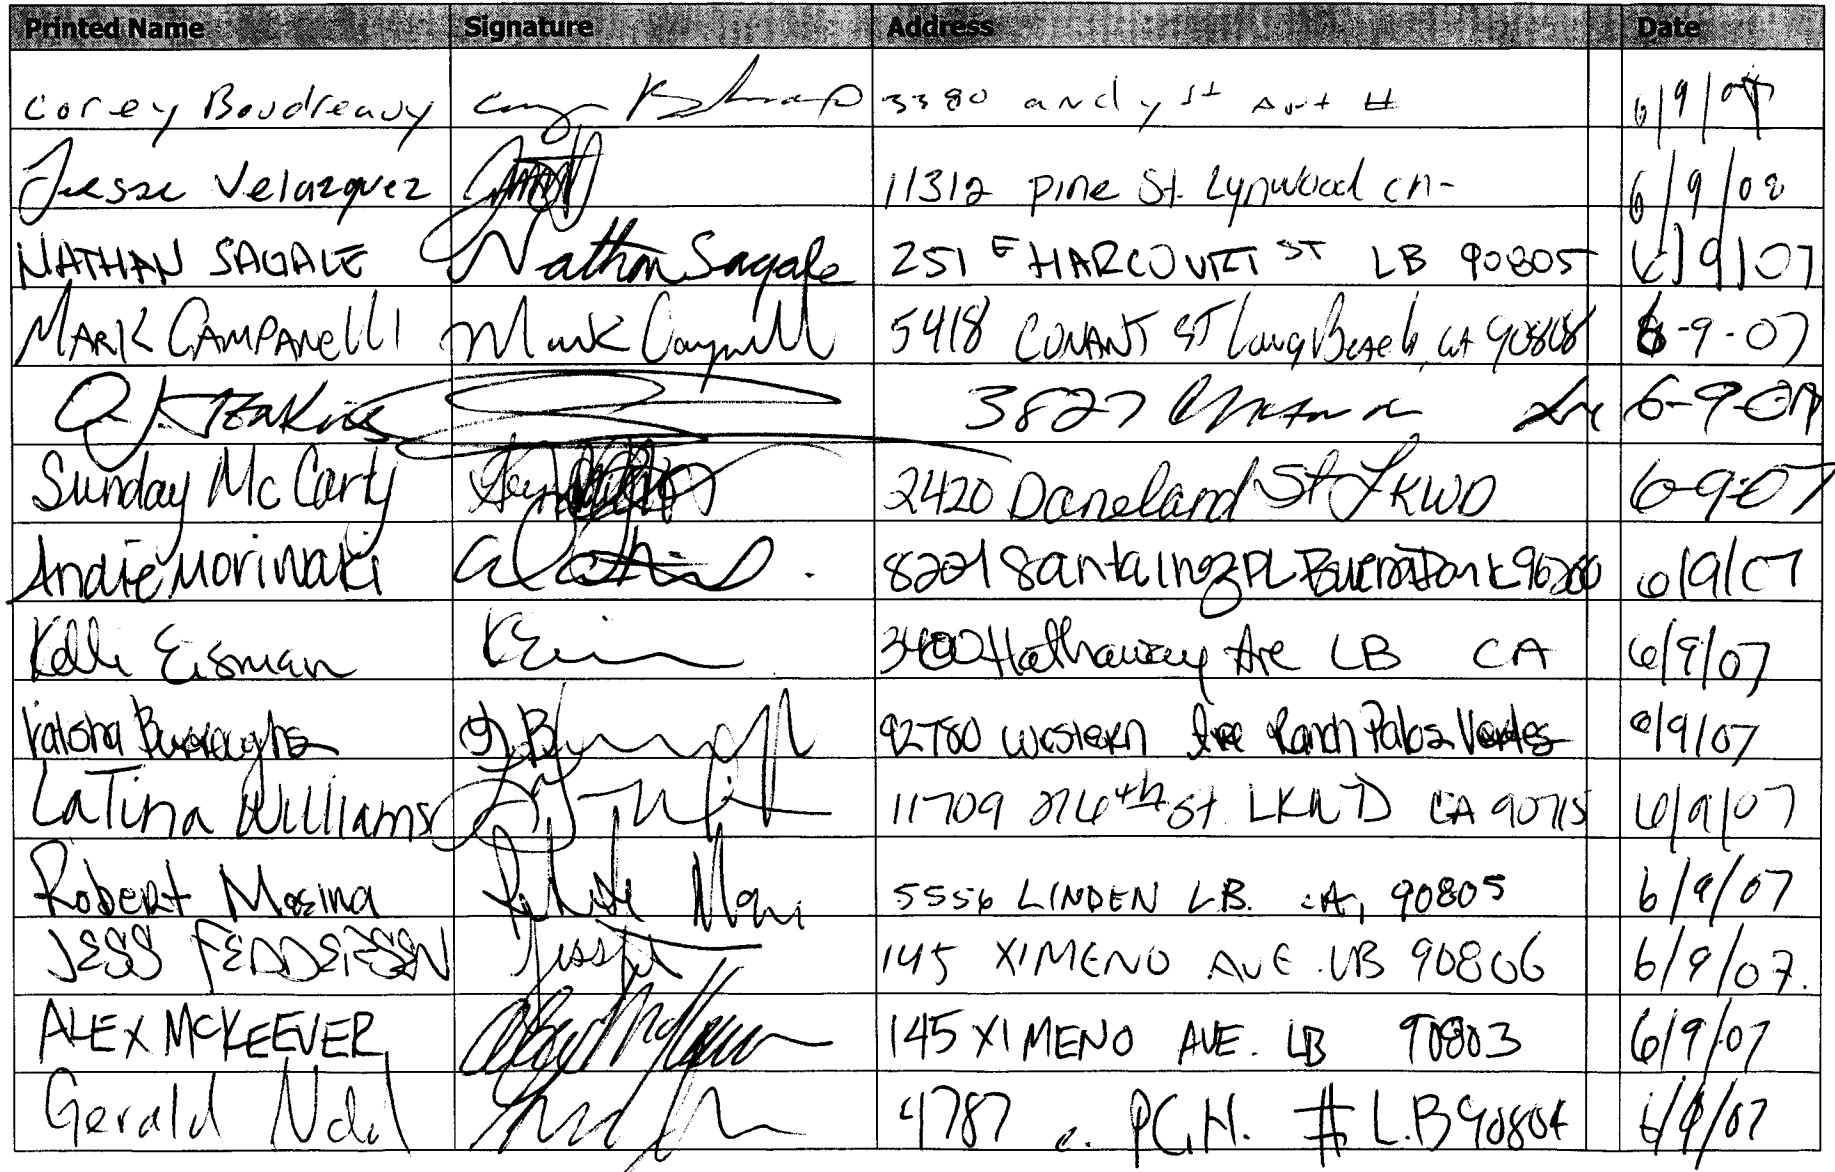 Printed Name Signature Address Date
Corey Boudreauy 3380 andy st Apt # 6/9/07
Jesse Velazquez 11312 Pine St. Lynwood CA- 6/9/08
NATHAN SAGALE Nathan Sagale 251 E HARCOURT ST LB 90805 6/9/07
MARK CAMPANELLI Mark 5418 CONANT ST Long Beach, CA 90808 6-9-07
3827 6-9-07
Sunday McCarty 2420 Daneland St LKWD 6-9-07
Andie Morinaki 8221 Santa Inez PL Buena Park 6/9/07
Kelli Eisman 3400 Hathaway Ave LB CA 6/9/07
Burroughs Western Ave Ranch Palos Verdes /9/07
LaTina Williams 11709 216th St. LKWD CA 90715 6/9/07
Robert Mosina 5556 LINDEN L.B. CA, 90805 6/9/07
JESS FEDDERSEN 145 XIMENO AVE LB 90806 6/9/07.
ALEX MCKEEVER 145 XIMENO AVE. LB 90803 6/9/07
Gerald 4787 e. P.C.H. # L.B 90804 6/9/07